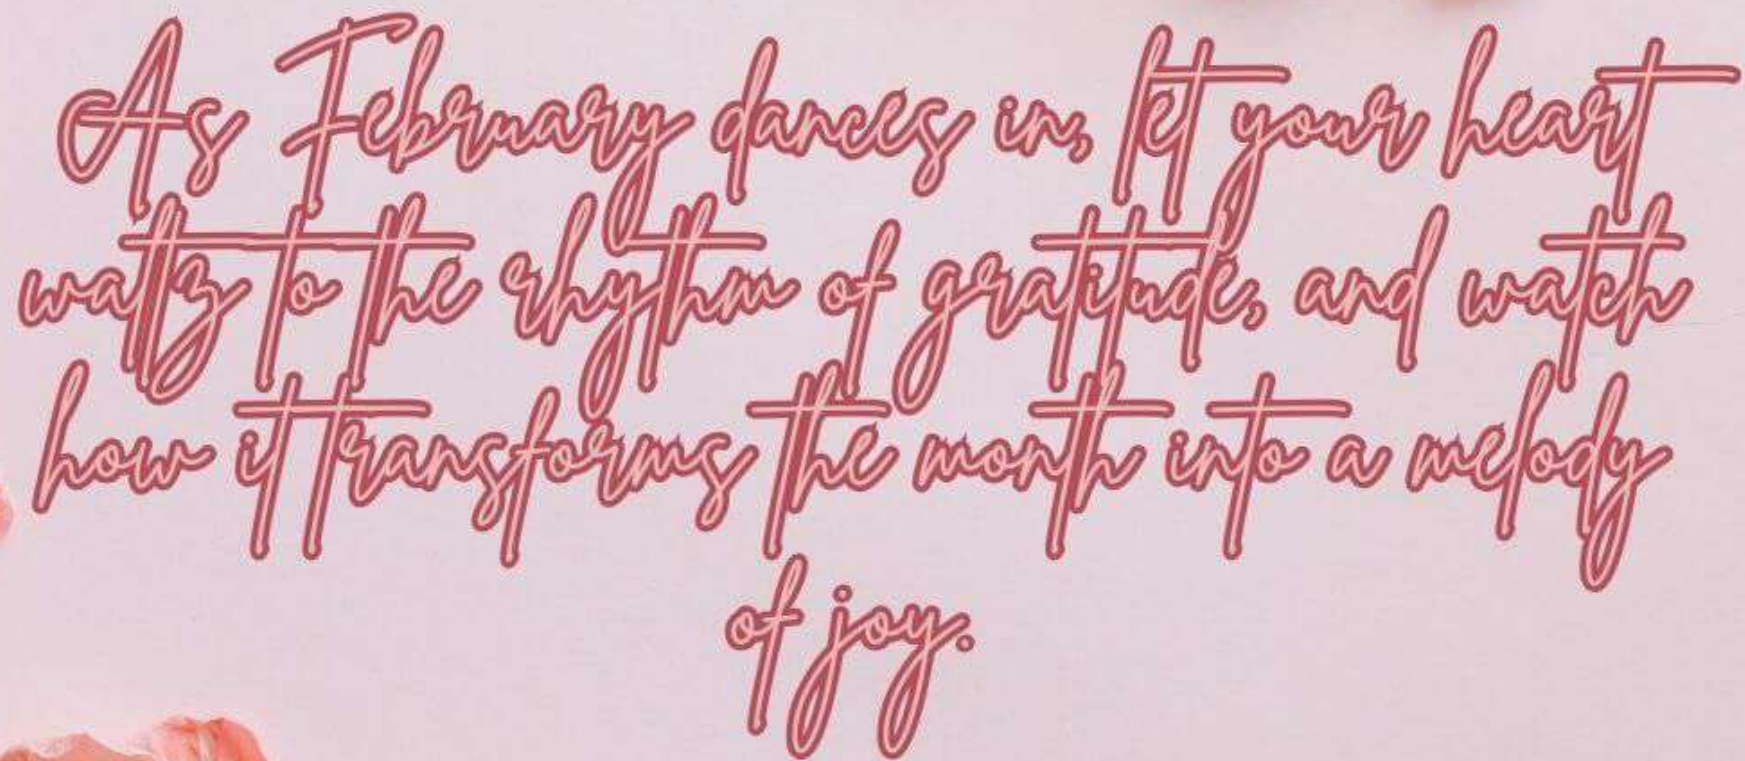 As February dances in, let your heart
waltz to the rhythm of gratitude, and watch
how it transforms the month into a melody
of joy.